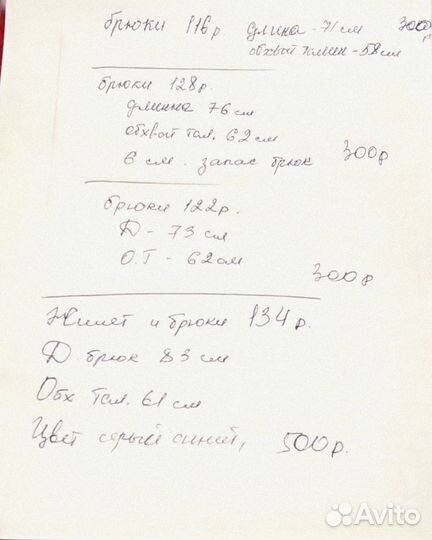 брюки 116р длина - 71см 300р
обхват талии - 58см
брюки 128р.
длинна 76см
обхват тал. 62см
6 см. запас брюк 300р
брюки 122р.
Д - 73 см
О.Т - 62см
300р
Жилет и брюки 134р.
Д брюк 83 см
Обх тал. 61 см
Цвет серый синий, 500р.
Avito